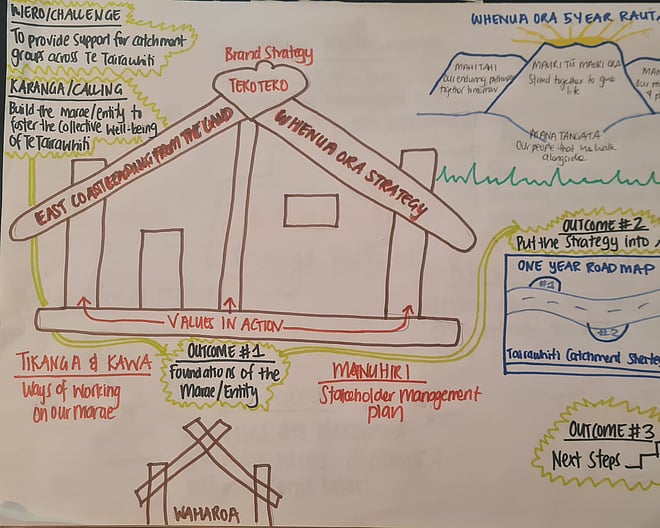 WERO/CHALLENGE
To provide support for catchment
groups across Te Tairawhiti
KARANGA/CALLING
Build the marae/entity to
foster the collective well-being
of Te Tairawhiti
Brand Strategy
TEKOTEKO
EAST COAST LEADING FROM THE LAND
WHENUA ORA STRATEGY
VALUES IN ACTION
TIKANGA & KAWA
Ways of working
on our marae
OUTCOME #1
Foundations of the
Marae/Entity
MANUHIRI
Stakeholder management
plan
WAHAROA
WHENUA ORA 5 YEAR
MAHI TAHI
Our enduring
together tomorrow
MAURI TŪ MAURI ORA
Stand together to give
life
Our
&
TANGATA
Our people that we walk
alongside
OUTCOME #2
Put the Strategy into
ONE YEAR ROAD MAP
#1
#2
Tairawhiti Catchment
OUTCOME #3
Next Steps